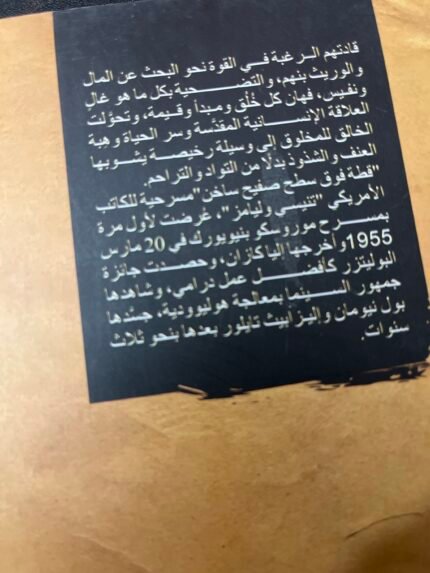 قادتهم الرغبة في القوة نحو البحث عن المال
والوريث بنهم، والتضحية بكل ما هو غالٍ
ونفيس، فهان كل خُلُق ومبدأ وقيمة، وتحوَّلت
العلاقة الإنسانية المقدَّسة وسر الحياة وهِبة
الخالق للمخلوق إلى وسيلة رخيصة يشوبها
العنف والشذوذ بدلًا من التواد والتراحم.
"قطة فوق سطح صفيح ساخن" مسرحية للكاتب
الأمريكي "تنيسي وليامز"، عُرضت لأول مرة
بمسرح موروسكو بنيويورك في 20 مارس
1955 وأخرجها إليا كازان، وحصدت جائزة
البوليتزر كأفضل عمل درامي، وشاهدها
جمهور السينما بمعالجة هوليوودية، جسَّدها
بول نيومان وإليزابيث تايلور بعدها بنحو ثلاث
سنوات.